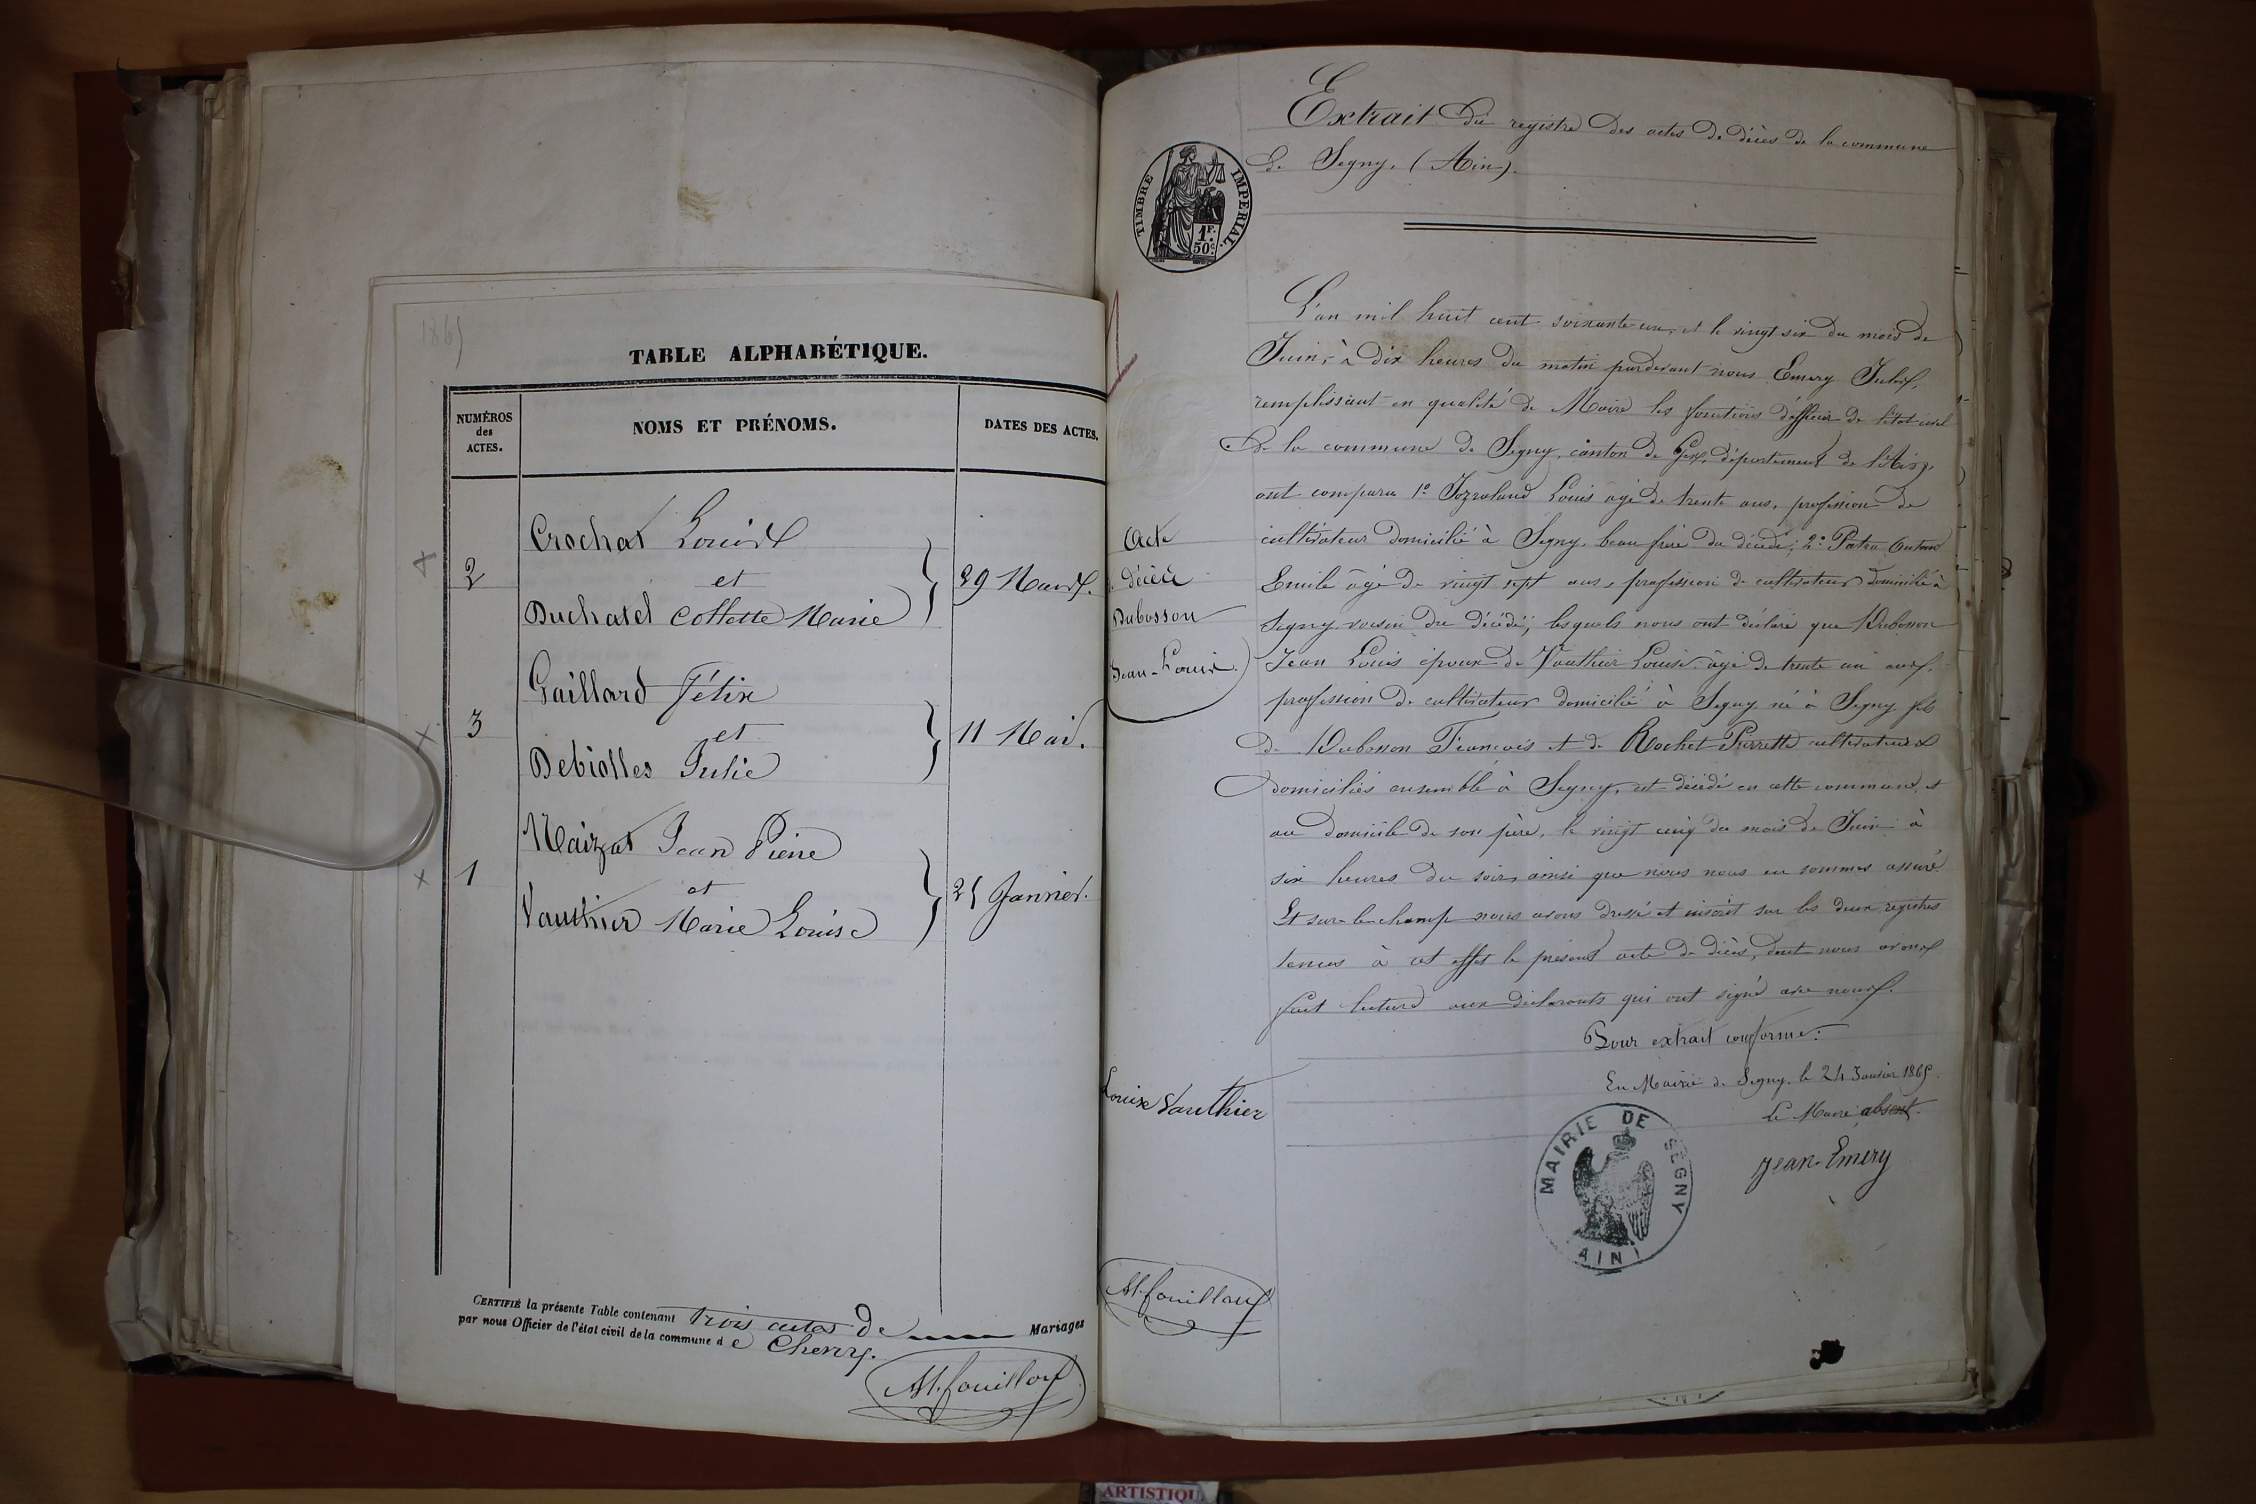 1865
TABLE ALPHABÉTIQUE.
NUMÉROS
des
ACTES.
NOMS ET PRÉNOMS.
DATES DES ACTES.
Crochat Louis
et
2
29 Mars.
Duchatel Collette Marie
Gaillard Félix
et
3
11 Mai.
Debiolles Julie
Maizat Jean Pierre
et
1
25 Janvier.
Vauthier Marie Louise
CERTIFIÉ la présente Table contenant trois actes de Mariages
par nous Officier de l'état civil de la commune de Chevry.
M. fouilloux
Extrait du registre des actes de décès de la commune
de Segny, (Ain).
TIMBRE IMPERIAL.
1F.
50c.
L'an mil huit cent soixante un, et le vingt six du mois de
Juin, à dix heures du matin pardevant nous Emery Jules,
remplissant en qualité de Maire les fonctions d'officier de l'état civil
de la commune de Segny, canton de Gex, département de l'Ain,
ont comparu 1º Louis âgé de trente ans, profession de
cultivateur domicilié à Segny beau frère du décédé; 2º
Emile âgé de vingt sept ans, profession de cultivateur domicilié à
Segny voisin du décédé; lesquels nous ont déclaré que Dubosson
Jean Louis époux de Vauthier Louise âgé de trente un ans,
profession de cultivateur domicilié à Segny né à Segny fils
de Dubosson François et de Rochet Pierrette cultivateurs
domiciliés ensemble à Segny, est décédé en cette commune, et
au domicile de son père, le vingt cinq du mois de Juin à
six heures du soir, ainsi que nous nous en sommes assuré.
Et sur-le-champ nous avons dressé et inscrit sur les deux registres
tenus à cet effet le présent acte de décès, dont nous avons
fait lecture aux déclarants qui ont signé avec nous.
Acte
décès
Dubosson
Jean-Louis.
Pour extrait conforme:
En Mairie de Segny, le 24 Janvier 1865.
Le Maire absent.
Jean-Emery
Louise Vauthier
MAIRIE DE SEGNY
AIN
M. fouilloux
ARTISTIQU